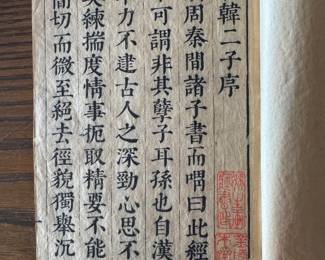 韓二子序
周秦間諸子書而喟曰此經
可謂非其孽子耳孫也自漢
力不逮古人之深勁心思不
英練揣度情事扼取精要不能
簡切而微至絕去徑貌獨舉沉